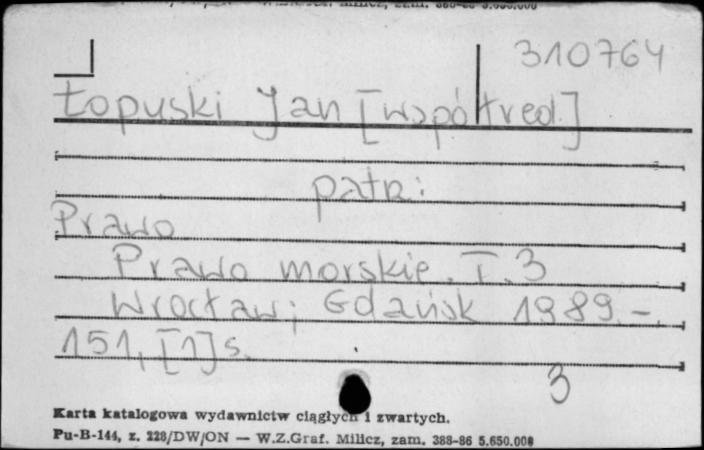 310764
Łopuski Jan [współred.]
patrz:
Prawo
Prawo morskie. T. 3
Wrocław; Gdańsk 1989. -
151, [1] s.
3
Karta katalogowa wydawnictw ciągłych i zwartych.
Pu-B-144, z. 228/DW/ON — W.Z.Graf. Milicz, zam. 388-86 5.650.000